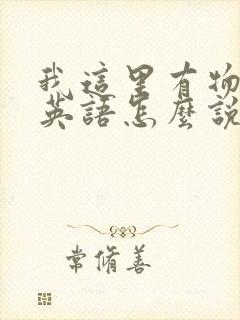 我這里有物
英語怎麼說
常脩善